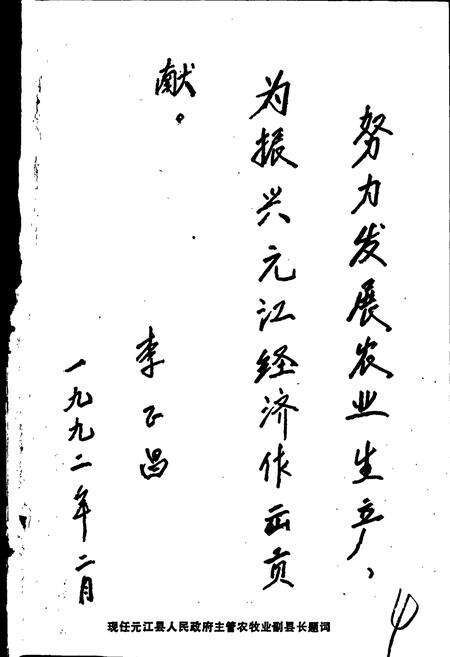 努力发展农业生产、
为振兴元江经济作出贡
献。
李正昌
一九九二年二月
现任元江县人民政府主管农牧业副县长题词